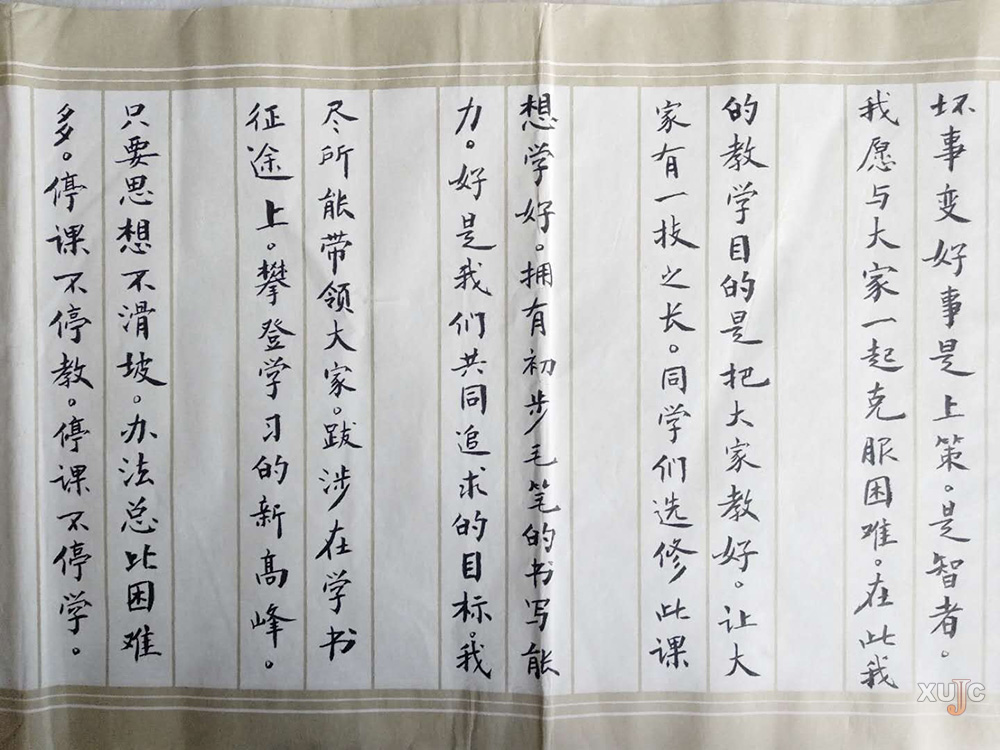 坏事变好事是上策。是智者。
我愿与大家一起克服困难。在此我
的教学目的是把大家教好。让大
家有一技之长。同学们选修此课
想学好。拥有初步毛笔的书写能
力。好是我们共同追求的目标。我
尽所能带领大家。跋涉在学书
征途上。攀登学习的新高峰。
只要思想不滑坡。办法总比困难
多。停课不停教。停课不停学。
XUJC